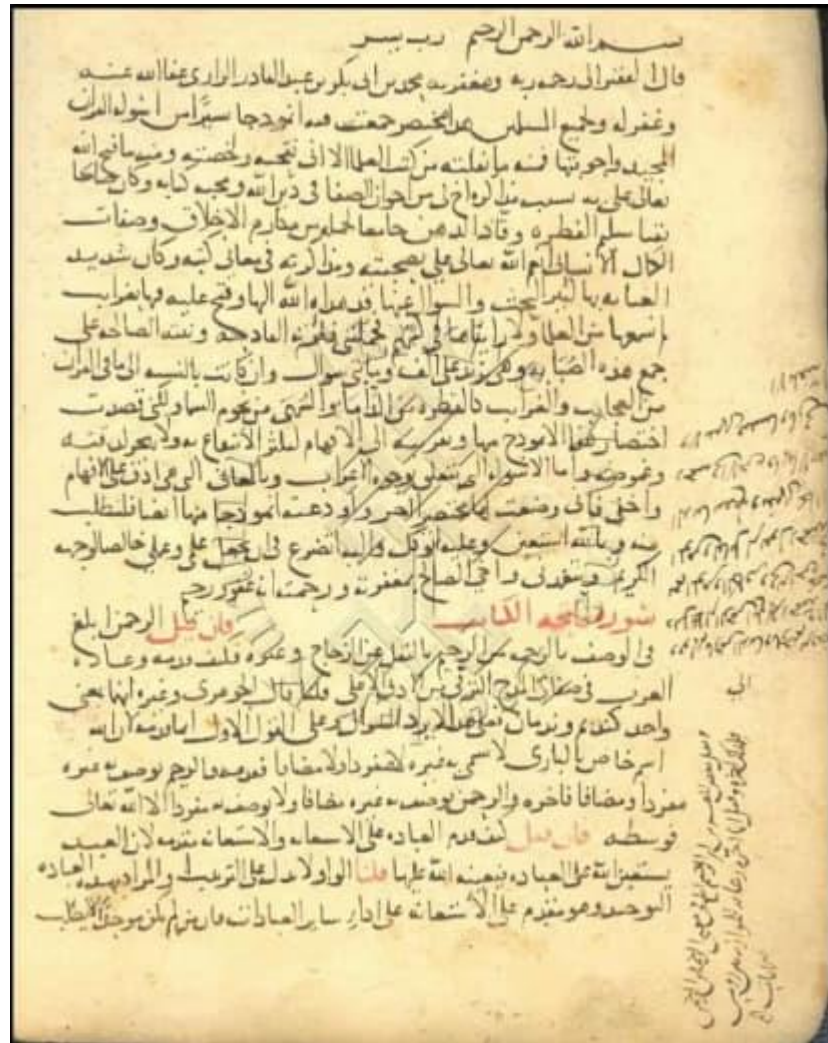 بسم الله الرحمن الرحيم رب يسر
قال الفقير الى رحمة ربه ومغفرته محمد بن ابى بكر بن عبد القادر الرازي عفا الله عنه
وغفر له ولجميع المسلمين هذا مختصر جمعت فيه انموذجا يسيرا من اسولة القران
المجيد واجوبتها فمنه ما نقلته من كتب العلما الا انى نقحته ولخصته ومنه ما فتح الله
تعالى على به بسبب مذاكرة اخ لى من اخوان الصفا فى دين الله ومحبة كتابه وكان صالحا
تقيا سليم الفطرة وقاد الذهن جامعا لجمل من مكارم الاخلاق وصفات
الكمال الانسانى انعم الله تعالى على بصحبته ومذاكرته فى معانى كتابه وكان شديد
العناية بها كثير البحث والسوال عنها قد هداه الله اليها وفتح عليه فيها بغرايب
ما سمعها من العلما ولا راتها فى كتبهم فحملتنى فكرته القادحة ونيته الصالحة على
جمع هذه الصبابة وهى تزيد على الف ومايتى سوال وان كانت بالنسبة الى ما فى القران
من العجايب والغرايب كالقطرة من الداما والسهى من نجوم السما ولكنى قصدت
اختصار هذا الانموذج منها وتقريبه الى الافهام ليكثر الانتفاع به ولا يحول دقته
وغموضه واما الاسولة التى تتعلق بوجوه الاعراب وبالمعانى التى هى ادق على الافهام
واخفى فانى وضعت لها مختصرا اخر واودعته انموذجا منها ايضا فلتطلب
منه وبالله استعين وعليه اتوكل واليه اتضرع فى ان يجعل علمى وعملى خالصا لوجهه
الكريم ويتغمدنى واخى الصالح بمغفرته ورحمته انه غفور رحيم
سورة فاتحة الكتاب فان قيل الرحمن ابلغ
فى الوصف بالرحمة من الرحيم بالنقل عن الزجاج وغيره فكيف قدمه وعادة
العرب فى صفات المدح الترقى من الادنى الى الاعلى قلنا قال الجوهرى وغيره انهما بمعنى
واحد كنديم وندمان فعلى هذا لا يرد السوال وعلى القول الاول انما قدمه لان الله
اسم خاص بالبارى لا يسمى به غيره لا مفردا ولا مضافا فقدمه والرحيم يوصف به غيره
مفردا ومضافا فاخره والرحمن يوصف به غيره مضافا ولا يوصف به مفردا الا الله تعالى
فوسطه فان قيل كيف قدم العبادة على الاستعانة والاستعانة مقدمة لان العبد
يستعين الله على العبادة فيعينه الله عليها قلنا الواو لا تدل على الترتيب والمراد بهذه العبادة
التوحيد وهو مقدم على الاستعانة على ادا ساير العبادات فان من لم يكن موحدا لا يطلب